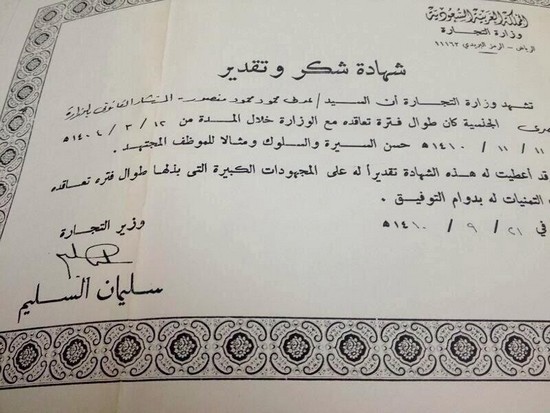 المملكة العربية السعودية
وزارة التجارة
الرياض - الرمز البريدي ١١١٦٢
شهادة شكر و تقدير
تشهد وزارة التجارة أن السيد / محمود محمود منصور - المستشار القانوني بالوزارة
الجنسية كان طوال فترة تعاقده مع الوزارة خلال المدة من ١٢ / ٣ / ١٤٠٤ هـ
١١ / ١١ / ١٤١٠ هـ حسن السيرة والسلوك ومثالا للموظف المجتهد .
قد أعطيت له هذه الشهادة تقديراً له على المجهودات الكبيرة التى بذلها طوال فتره تعاقده
التمنيات له بدوام التوفيق .
في ٢١ / ٩ / ١٤١٠ هـ
وزير التجارة
سليمان السليم